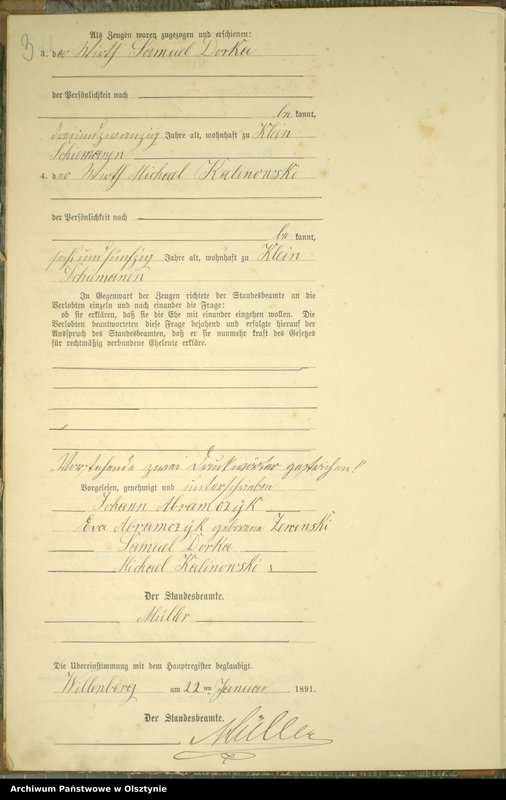 3
Als Zeugen waren zugezogen und erschienen:
3. der Wirth Samuel Dorka
der Persönlichkeit nach
be kannt,
dreiundzwanzig Jahre alt, wohnhaft zu Klein
Schiemanen
4. der Wirth Michael Kalinowski
der Persönlichkeit nach
be kannt,
sechsundfünfzig Jahre alt, wohnhaft zu Klein
Schiemanen
In Gegenwart der Zeugen richtete der Standesbeamte an die
Verlobten einzeln und nach einander die Frage:
ob sie erklären, daß sie die Ehe mit einander eingehen wollen. Die
Verlobten beantworteten diese Frage bejahend und erfolgte hierauf der
Ausspruch des Standesbeamten, daß er sie nunmehr kraft des Gesetzes
für rechtmäßig verbundene Eheleute erkläre.
Vorstehende zwei Druckwörter gestrichen!
Vorgelesen, genehmigt und unterschrieben
Johann Abramczÿk
Eva Abramczÿk geborene Zeranski
Samuel Dorka
Michael Kalinowski
Der Standesbeamte.
Müller
Die Übereinstimmung mit dem Hauptregister beglaubigt.
Willenberg am 22 ten Januar 1891.
Der Standesbeamte.
Müller
Archiwum Państwowe w Olsztynie